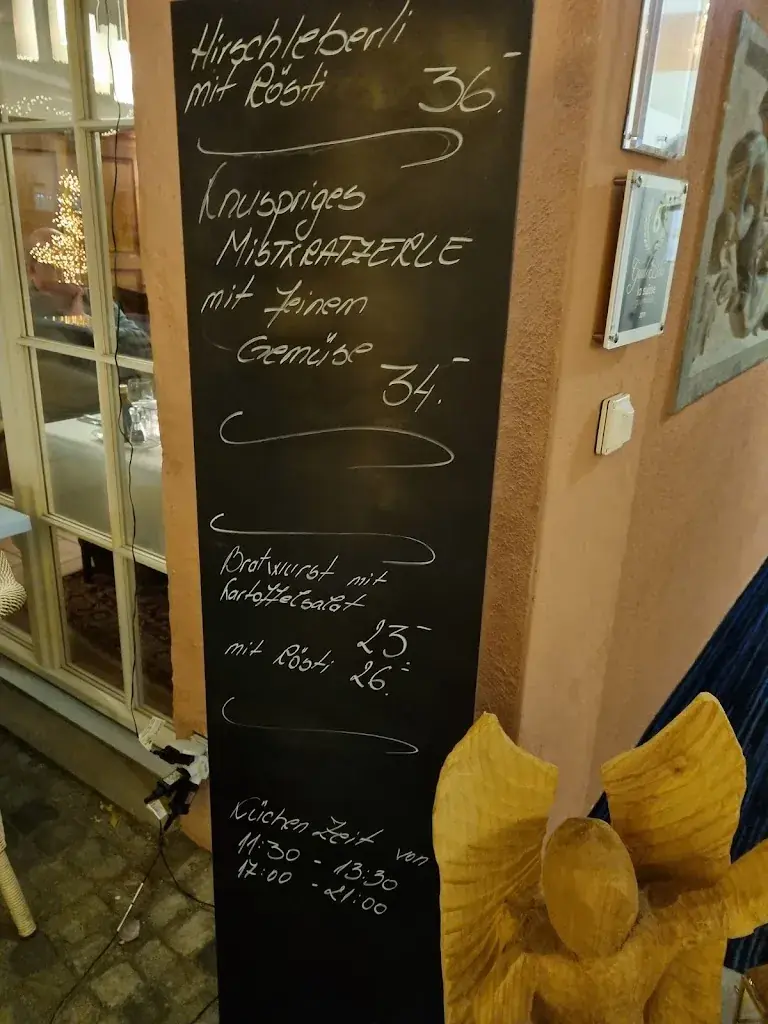 Hirschleberli
mit Rösti 36.-
Knuspriges
MISTKRATZERLE
mit feinem
Gemüse
34.-
Bratwurst mit
Kartoffelsalat
23.-
mit Rösti 26.-
Küchen Zeit von
11:30 - 13:30
17:00 - 21:00